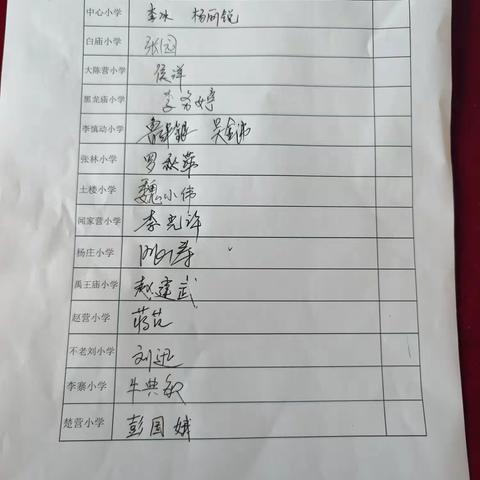 中心小学 李冰 杨丽锐
白庙小学 张园
大陈营小学 侯洋
黑龙庙小学 李芳婷
李慎动小学 吴金伟
张林小学 罗秋萍
土楼小学 魏小伟
闻家营小学 李光许
杨庄小学
禹王庙小学 赵建武
赵营小学 蒋芃
不老刘小学 刘迅
李寨小学 牛典敏
楚营小学 彭国娥